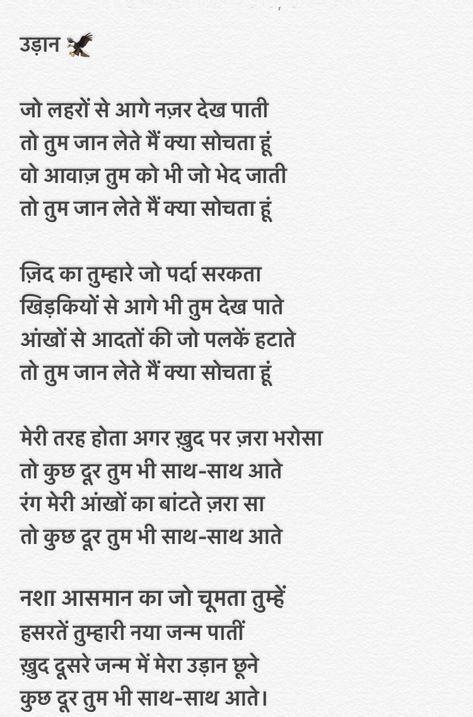 उड़ान 🦅
जो लहरों से आगे नज़र देख पाती
तो तुम जान लेते मैं क्या सोचता हूं
वो आवाज़ तुम को भी जो भेद जाती
तो तुम जान लेते मैं क्या सोचता हूं
ज़िद का तुम्हारे जो पर्दा सरकता
खिड़कियों से आगे भी तुम देख पाते
आंखों से आदतों की जो पलकें हटाते
तो तुम जान लेते मैं क्या सोचता हूं
मेरी तरह होता अगर ख़ुद पर ज़रा भरोसा
तो कुछ दूर तुम भी साथ-साथ आते
रंग मेरी आंखों का बांटते ज़रा सा
तो कुछ दूर तुम भी साथ-साथ आते
नशा आसमान का जो चूमता तुम्हें
हसरतें तुम्हारी नया जन्म पातीं
ख़ुद दूसरे जन्म में मेरा उड़ान छूने
कुछ दूर तुम भी साथ-साथ आते।